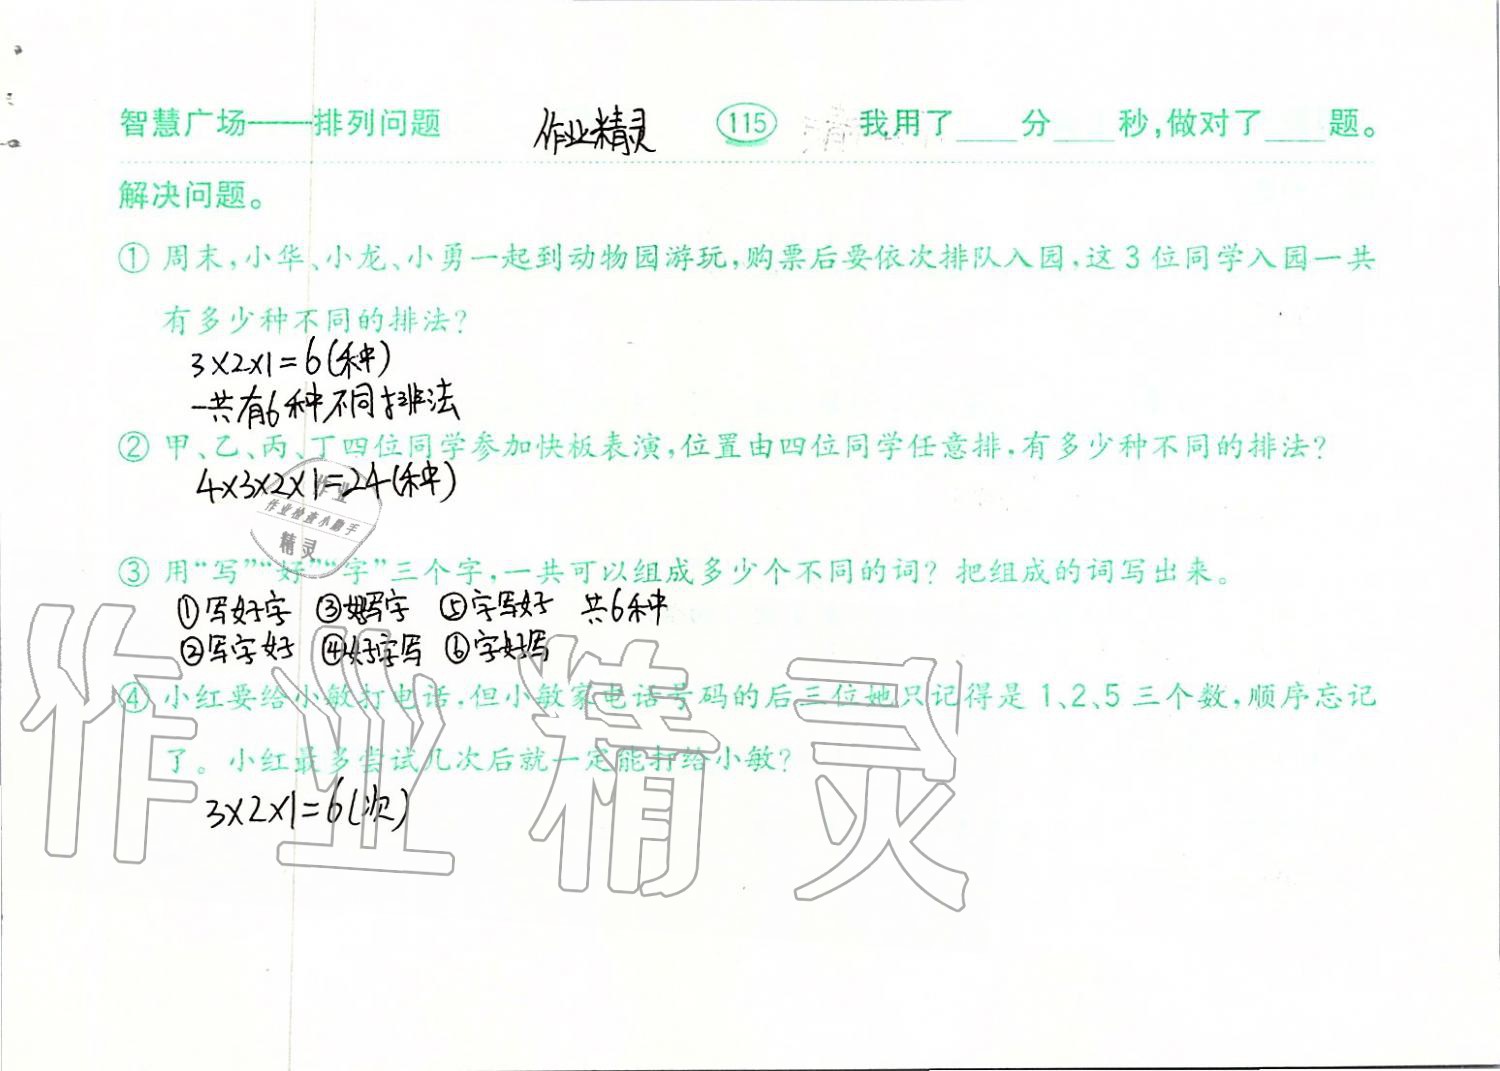 智慧广场——排列问题 作业精灵 115 我用了____分____秒,做对了____题。
解决问题。
① 周末,小华、小龙、小勇一起到动物园游玩,购票后要依次排队入园,这3位同学入园一共
有多少种不同的排法?
3×2×1=6(种)
一共有6种不同排法
② 甲、乙、丙、丁四位同学参加快板表演,位置由四位同学任意排,有多少种不同的排法?
4×3×2×1=24(种)
作业
作业检查小助手
精灵
③ 用“写”“好”“字”三个字,一共可以组成多少个不同的词?把组成的词写出来。
①写好字 ③好写字 ⑤字写好 共6种
②写字好 ④好字写 ⑥字好写
④ 小红要给小敏打电话,但小敏家电话号码的后三位她只记得是1、2、5三个数,顺序忘记
了。小红最多尝试几次后就一定能打给小敏?
3×2×1=6(次)
作业精灵